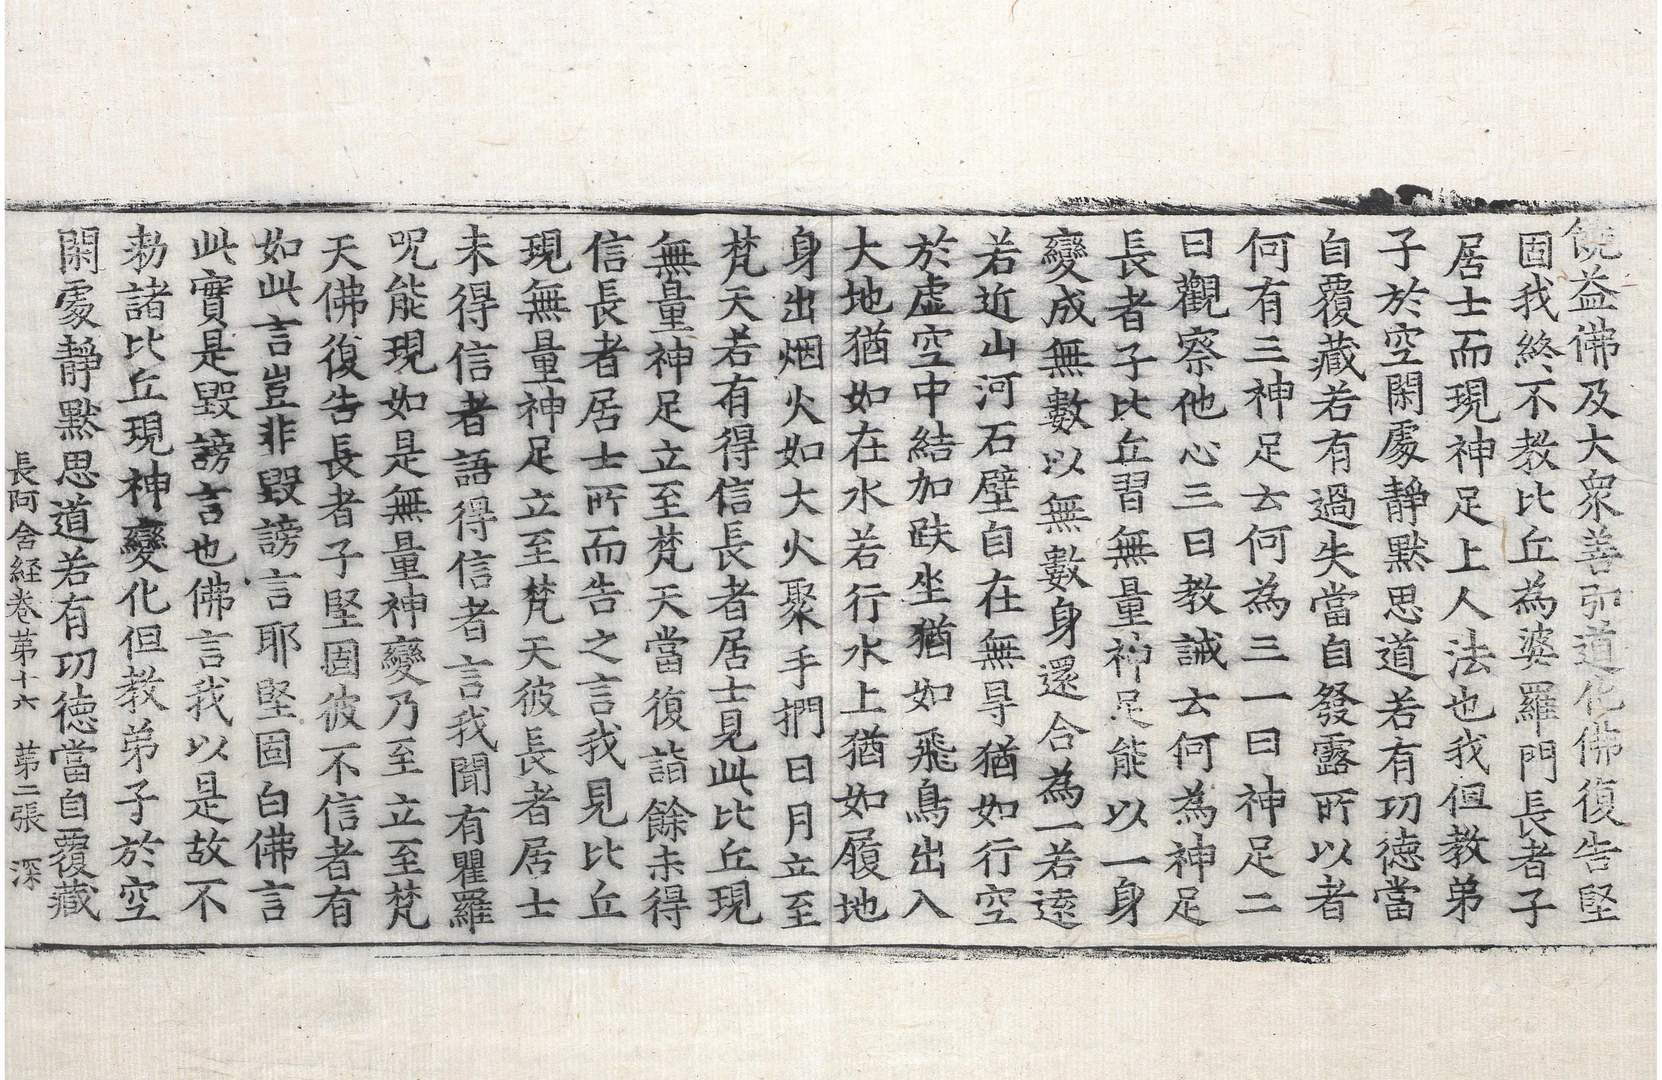 饒益佛及大衆善弘道化佛復告堅
固我終不教比丘為婆羅門長者子
居士而現神足上人法也我但教弟
子於空閑處靜默思道若有功德當
自覆藏若有過失當自發露所以者
何有三神足云何為三一曰神足二
曰觀察他心三曰教誡云何為神足
長者子比丘習無量神足能以一身
變成無數以無數身還合為一若遠
若近山河石壁自在無㝵猶如行空
於虛空中結加趺坐猶如飛鳥出入
大地猶如在水若行水上猶如履地
身出烟火如大火聚手捫日月立至
梵天若有得信長者居士見此比丘現
無量神足立至梵天當復詣餘未得
信長者居士所而告之言我見比丘
現無量神足立至梵天彼長者居士
未得信者語得信者言我聞有瞿羅
呪能現如是無量神變乃至立至梵
天佛復告長者子堅固彼不信者有
如此言豈非毀謗言耶堅固白佛言
此實是毀謗言也佛言我以是故不
勑諸比丘現神變化但教弟子於空
閑處靜默思道若有功德當自覆藏
長阿含經卷第十六 第二張 深